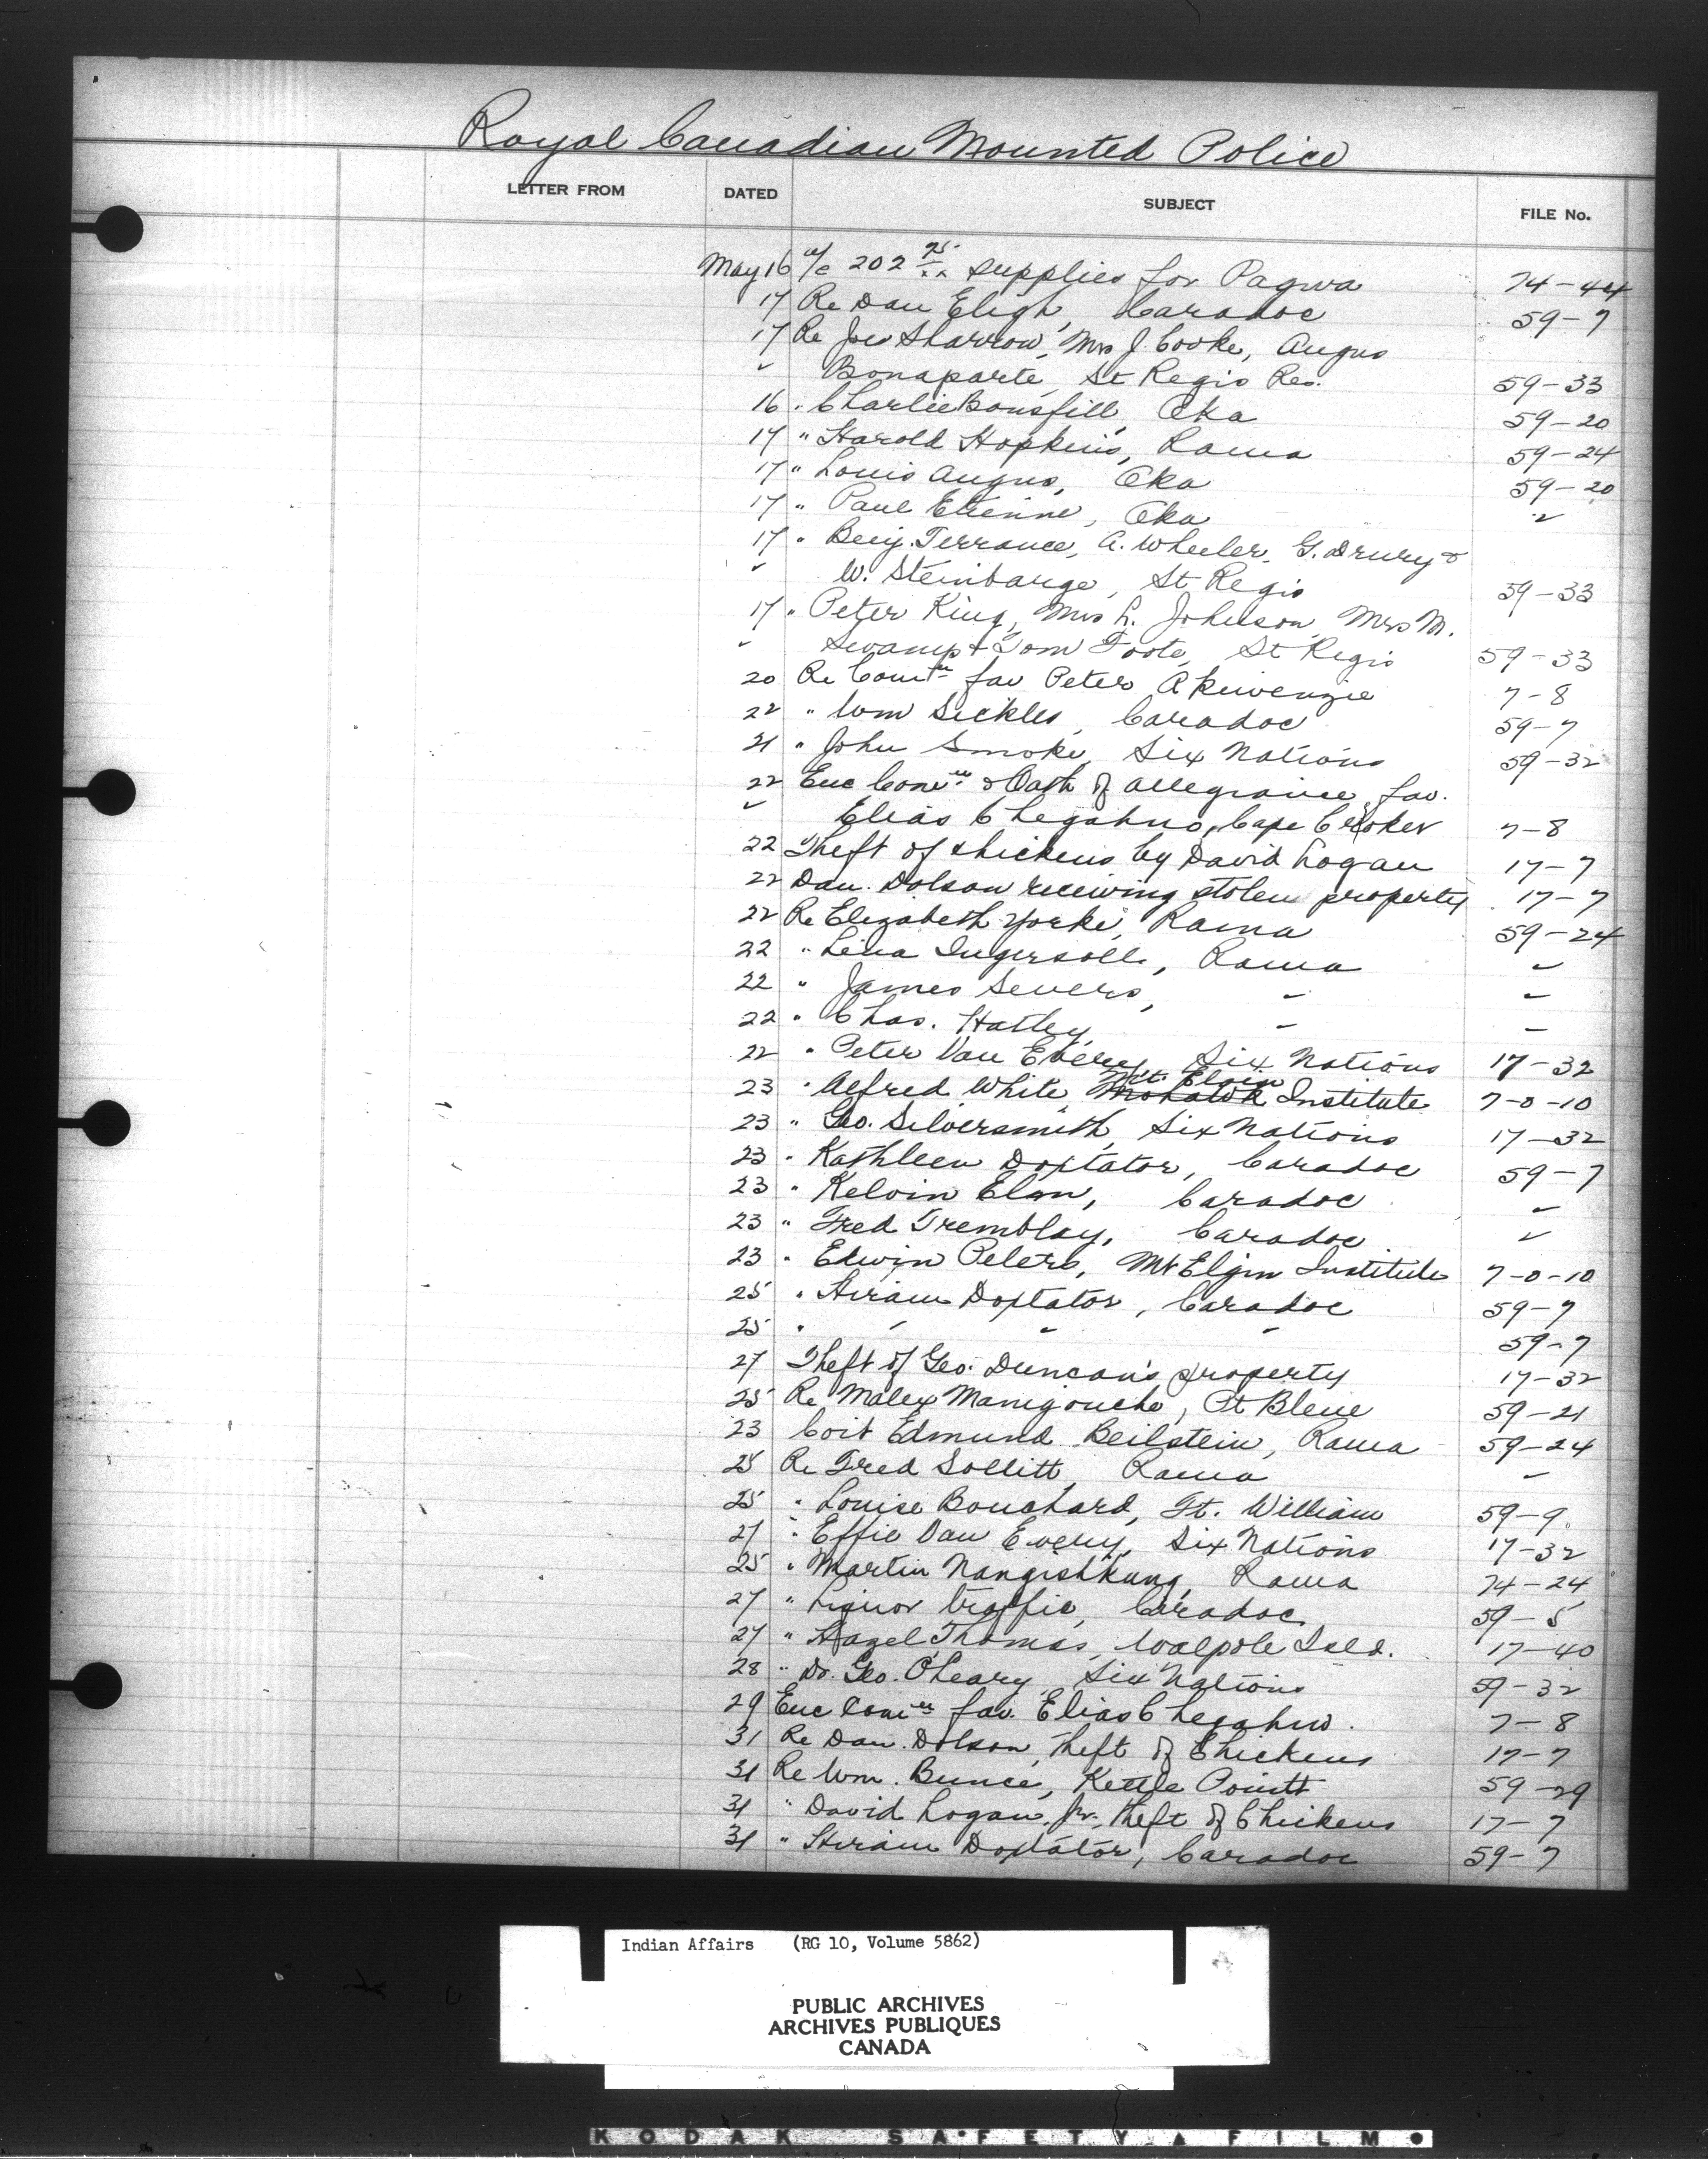 Royal Canadian Mounted Police
LETTER FROM DATED SUBJECT FILE No.
May 16 a/c 202 75/xx supplies for Pagwa 74-44
17 Re Dan Eligh, Caradoc 59-7
17 Re Joe Sharrow, Mrs J. Cooke, Angus
" Bonaparte, St Regis Res. 59-33
16 " Charlie Bonsfill, Oka 59-20
17 " Harold Hopkins, Rama 59-24
17 " Louis Angus, Oka 59-20
17 " Paul Etienne, Oka "
17 " Benj. Terrance, A. Wheeler, G. Drury &
" W. Steinbarge, St Regis 59-33
17 " Peter King, Mrs L. Johnson, Mrs M.
" Swamp & Tom Foote, St Regis 59-33
20 Re Com'n fav Peter Akiwenzie 7-8
22 " Wm Sickles, Caradoc 59-7
21 " John Smoke, Six Nations 59-32
22 Enc Com'n & Oath of allegiance fav.
" Elias Chegahno, Cape Croker 7-8
22 Theft of chickens by David Logan 17-7
22 Dan. Dolson receiving stolen property 17-7
22 Re Elizabeth Yorke, Rama 59-24
22 " Lena Ingersoll, Rama "
22 " James Severs, " "
22 " Chas. Hatley " "
22 " Peter Van Every Six Nations 17-32
23 " Alfred White, Mohawk Mt. Elgin Institute 7-0-10
23 " Geo. Silversmith, Six Nations 17-32
23 " Kathleen Doxtator, Caradoc 59-7
23 " Kelvin Elm, Caradoc "
23 " Fred Tremblay, Caradoc "
23 " Edwin Peters, Mt Elgin Institute 7-0-10
25 " Hiram Doxtator, Caradoc 59-7
25 " " " " 59-7
27 Theft of Geo. Duncan's property 17-32
25 Re Malex Manigouche, Pt Bleue 59-21
23 Coit Edmund Beilstein, Rama 59-24
25 Re Fred Sollitt, Rama "
25 " Louise Bouchard, Ft. William 59-9
27 " Effie Van Every, Six Nations 17-32
25 " Martin Nangishkung, Rama 74-24
27 " Liquor traffic, Caradoc 59-5
27 " Hazel Thomas, Walpole Isld. 17-40
28 " Dr. Geo. O'Leary, Six Nations 59-32
29 Enc Com'n fav. Elias Chegahno. 7-8
31 Re Dan. Dolson, Theft of Chickens 17-7
31 Re Wm. Bunce, Kettle Point 59-29
31 " David Logan, Jr., theft of Chickens 17-7
31 " Hiram Doxtator, Caradoc 59-7
Indian Affairs (RG 10, Volume 5862)
PUBLIC ARCHIVES
ARCHIVES PUBLIQUES
CANADA
KODAK SAFETY FILM